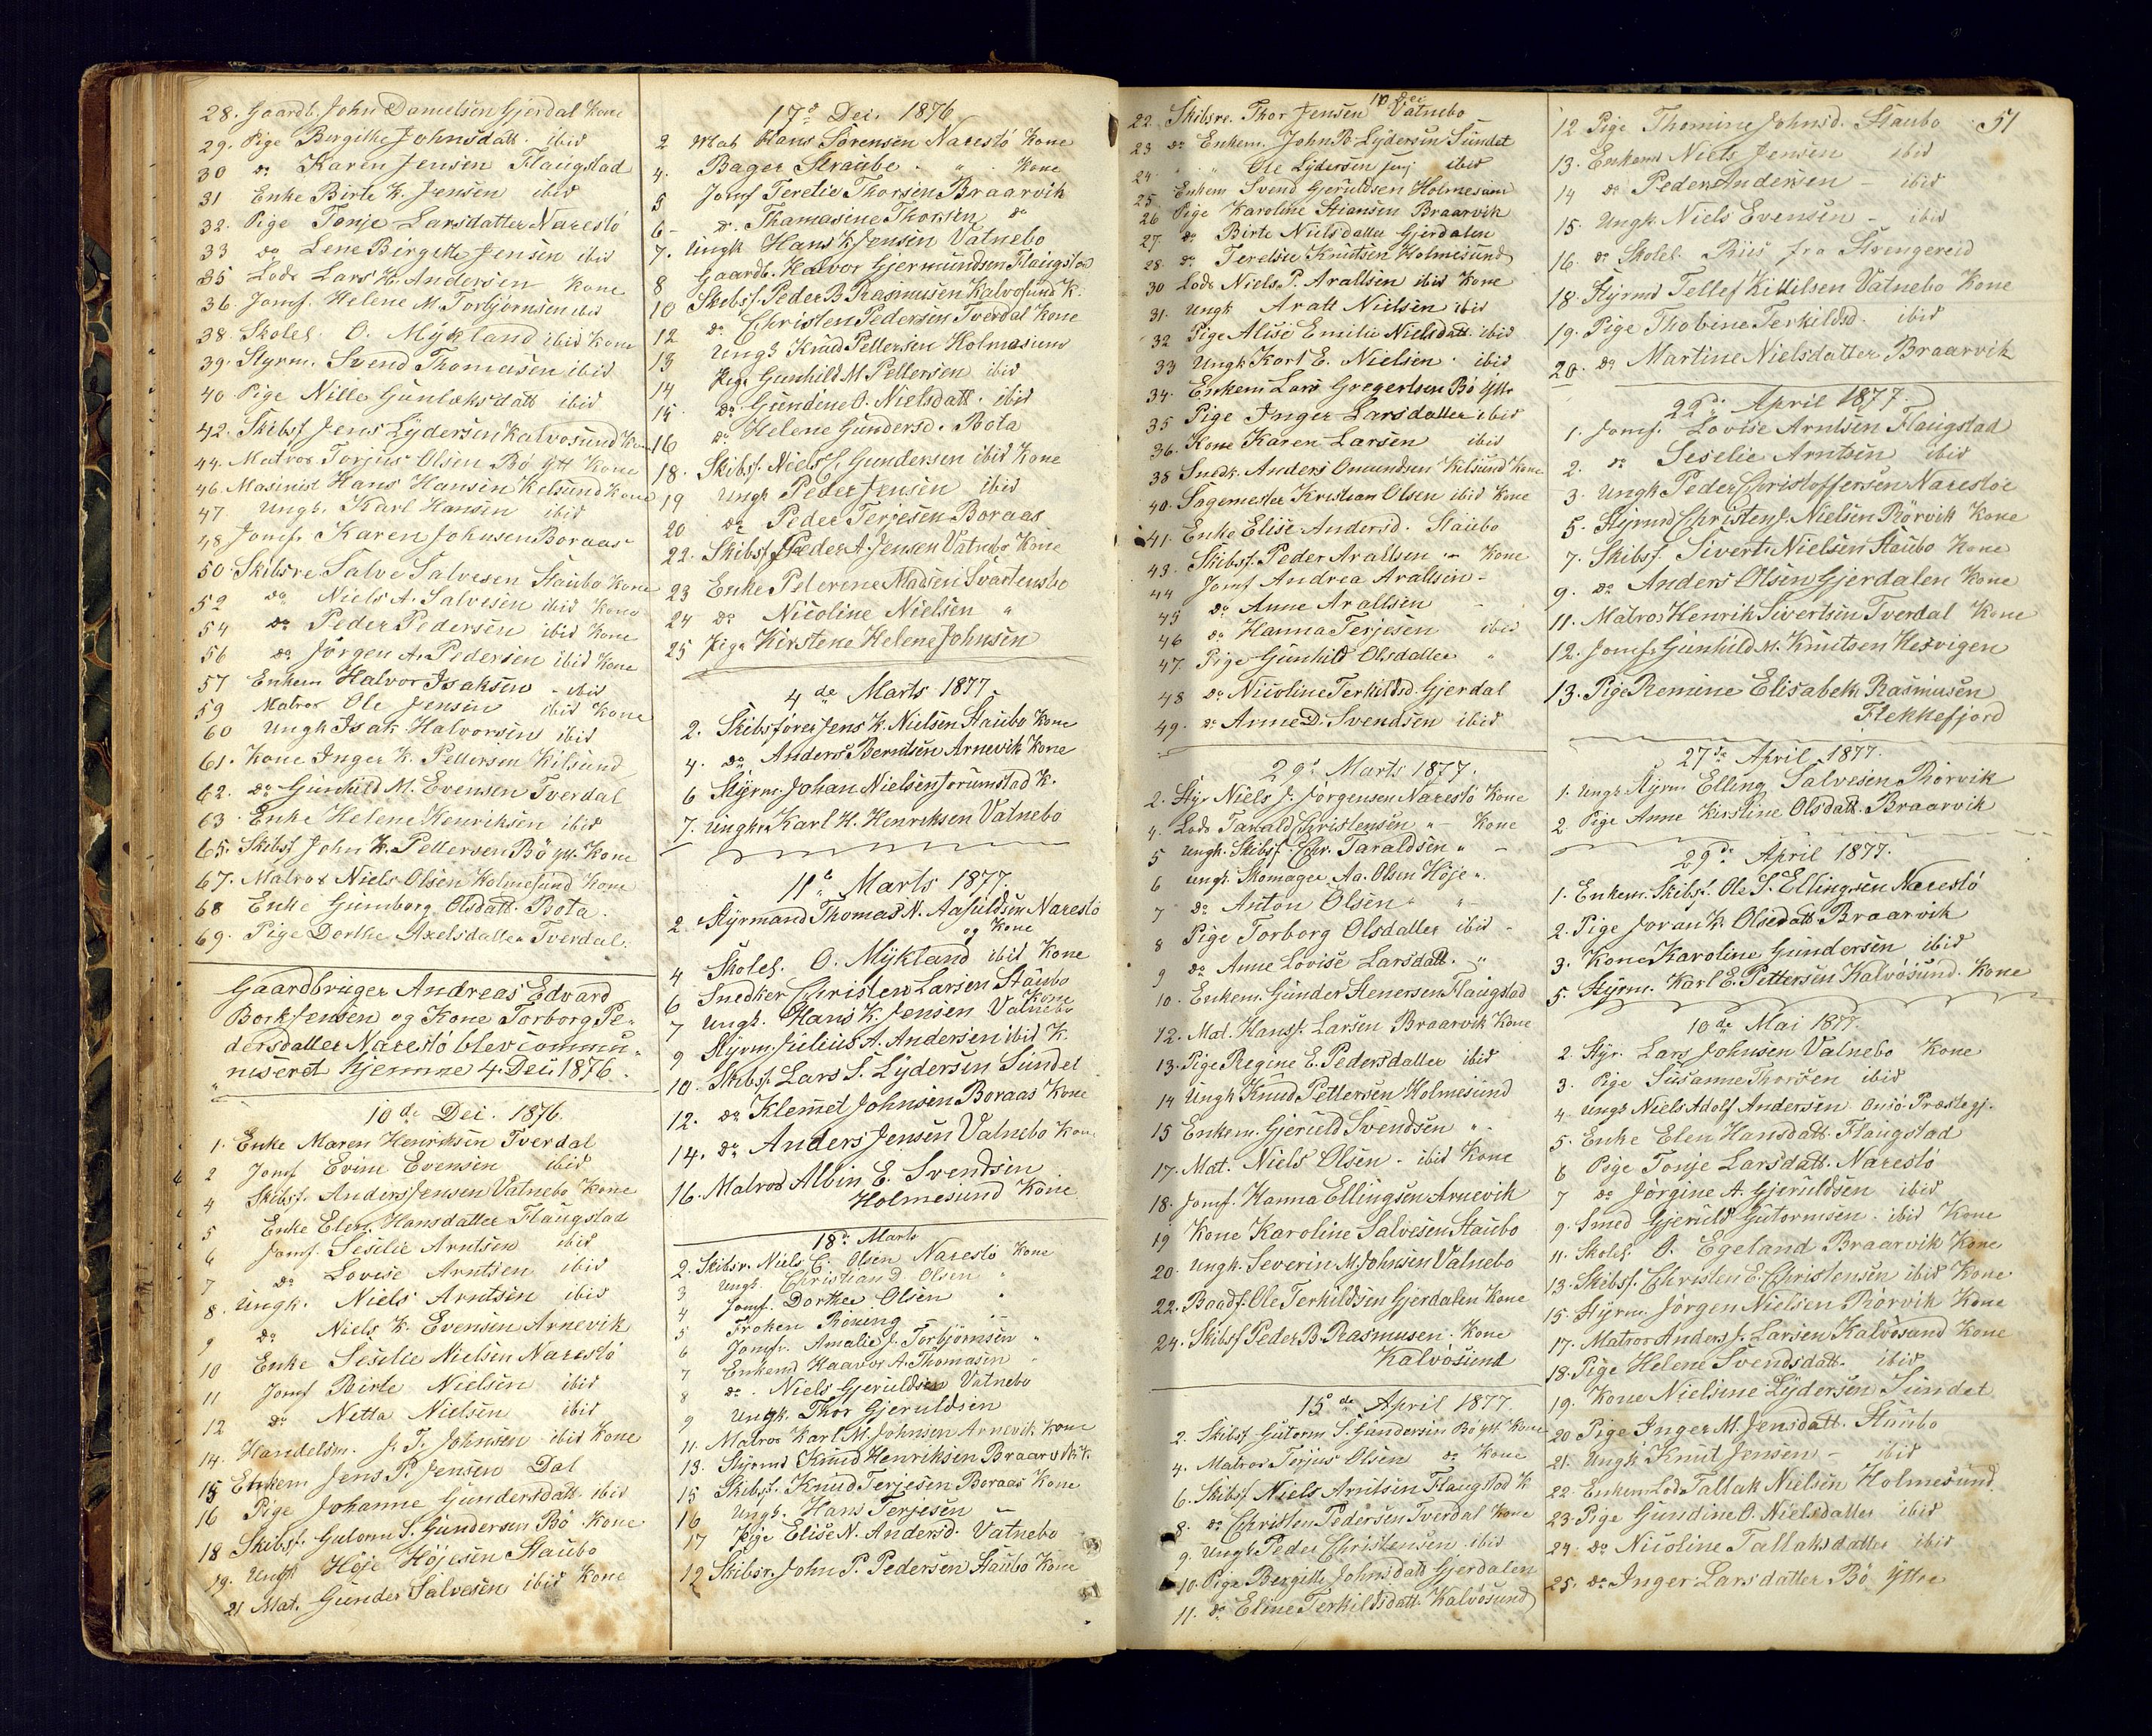 28. Gaardb. John Danielsen Gjerdal Kone
29. Pige Birgithe Johnsdatt. ibid
30 do Karen Jensen Flaugstad
31 Enke Birte K. Jensen ibid
32. Pige Tonje Larsdatter Narestö
33 do Lene Birgitte Jensen ibid
35 Lods Lars H. Andersen Kone
36. Jomf. Helene M. Torbjörnsen ibid
38. Skolel. O. Mykland ibid Kone
39. Styrm. Svend Thomasen ibid
40 Pige Nille Gunlaksdatt ibid
42. Skibsf. Jens Lydersen Kalvösund Kone
44. Matros Torjus Olsen Bö ytt Kone
46. Masinist Hans Hansen Kilsund Kone
47. Ungk. Karl Hansen ibid
48 Jomfr Karen Johnsen Boraas
50 Skibsre. Salve Salvesen Staubo Kone
52 do Niels A. Salvesen ibid Kone
54 do Peder Pedersen ibid Kone
56 do Jörgen A. Pedersen ibid Kone
57 Enkem Halvor Isaksen - ibid
59 Matros Ole Jensen ibid Kone
60 Ungk Isak Halvorsen ibid
61. Kone Inger K. Pettersen Kilsund
62. do Gunhild M. Evensen Tverdal
63. Enke Helene Henriksen ibid
65. Skibsf John K. Pettersen Bö ytt. Kone
67. Matros Niels Olsen Holmesund Kone
68 Enke Gunborg Olsdatt. Bota.
69. Pige Dorthe Axelsdatter Tverdal.
Gaardbruger Andreas Edvard
Bork Jensen og Kone Torborg Pe-
dersdatter Narestö blev commu-
niseret hjemme 4. Dec. 1876.
10de Dec. 1876.
1. Enke Maren Henriksen Tverdal
2 Jomf Evine Evensen ibid
4 Skibsf. Anders Jensen Vatnebo Kone
5 Enke Elen Hansdatter Flaugstad
6 Jomf. Seselie Arntsen ibid
7 do Lovise Arntsen ibid
8. Ungk. Niels Arntsen ibid
9 do Niels K. Evensen Arnevik
10 Enke Seselie Nielsen Narestö
11 Jomf Birte Nielsen ibid
12 do Netta Nielsen ibid
14. Handelsm. J. T. Johnsen ibid Kone
15 Enkem Jens P. Jensen Dal
16 Pige Johanne Gundersdatt ibid
18 Skibsf. Gutorm S. Gundersen Bö Kone
19. Ungk Höje Höjesen Staubo
21 Mat. Gunder Salvesen ibid Kone
17d Dec. 1876
2 Mat Hans Sörensen Narestö Kone
4. Bager Straube " Kone
5 Jomf Teretie Thorsen Braarvik
6- do Thamasine Thorsen do
7. Ungk Hans K. Jensen Vatnebo
8 Gaardb. Halvor Gjermundsen Flaugstad
10 Skibsf. Peder B. Rasmusen Kalvösund K.
12 do Christen Pedersen Tverdal Kone
13 Ungk Knud Pettersen Holmesund
14 Pige Gunhild M. Pettersen ibid
15. do Gundine O. Nielsdatt. ibid
16 do Helene Gundersd. Bota
18. Skibsf. Niels S. Gundersen ibid Kone
19 Ungk Peder Jensen ibid
20 do Peder Terjesen Boraas
22. Skibsf Peder A. Jensen Vatnebo Kone
23 Enke Peterene Madsen Svartensbo
24 do Nicoline Nielsen "
25 Pige Kirstene Helene Johnsen
4de Marts 1877
2. Skibsförer Jens K. Nielsen Staubo Kone
4. do Anders Berntsen Arnevik Kone
6 Styrm. Johan Nielsen Jorumstad K.
7. Ungk. Karl H. Henriksen Vatnebo
11te Marts 1877.
2. Styrmand Thomas N. Aasuldsen Narestö
og Kone
4 Skolel. O. Mykland ibid Kone
6 Snedker Christen Larsen Staubo Kone
7 Ungk. Hans K. Jensen Vatnebo
9 Styrm. Julius A. Andersen ibid K.
10. Skibsf. Lars S. Lydersen Sundet
12. do Klemet Johnsen Boraas Kone
14. do Anders Jensen Vatnebo Kone
16. Matros Albin E. Svendsen
Holmesund Kone
18de Marts
2. Skibsr. Niels C. Olsen Narestö Kone
3 Ungk Christiand Olsen "
4 Jomf. Dorthee Olsen "
5 Fröken Röning -
6 Jomfr. Amalie J. Torbjörnsen "
7 Enkemd Haavor A. Thomasen "
8 do Niels Gjeruldsen Vatnebo
9 Ungk. Thor Gjeruldsen
11. Matros Karl M. Johnsen Arnevik Kone
13. Styrmd Knud Henriksen Braarvik K.
15 Skibsf. Knud Terjesen Boraas Kone
16 Ungk. Hans Terjesen -
17 Pige Elise N. Andersd. Vatnebo
19 Skibsr. John P. Pedersen Staubo Kone
10 Dec
22. Skibsre. Thor Jensen Vatnebo
23 do Enkem. John B. Lydersen Sundet
24 " " Ole Lydersen junj ibid
25 Enkem Svend Gjeruldsen Holmesund
26 Pige Karoline Stiansen Braarvik
27. do Birte Nielsdatter Gjerdalen
28. do Terelsie Knutsen Holmesund
30 Lods Niels P. Araltsen ibid Kone
31. Ungk Aralt Nielsen ibid
32 Pige Alise Emilie Nielsdatt. ibid
33 Ungk Karl E. Nielsen ibid
34. Enkem Lars Gregertsen Bö ytt.
35 Pige Inger Larsdatter ibid
36. Kone Karen Larsen ibid
38 Snedk. Anders Omundsen Kilsund Kone
40. Sagemester Kristian Olsen ibid Kone
41. Enke Elise Andersd. Staubo
43. Skibsf. Peder Araltsen - Kone
44 Jomf Andrea Aralltsen -
45 do Anne Aralltsen -
46 do Hanna Terjesen ibid
47. Pige Gunhild Olsdatter "
48 do Nicoline Terkildsd. Gjerdal
49. do Anne D. Svendsen ibid
29d Marts 1877.
2. Styr Niels J. Jörgensen Narestö Kone
4. Lods Tarald Christensen " - Kone
5 Ungk. Skibsf. Chr. Taraldsen " -
6 Ungk. Skomager Aa. Olsen Höje ".
7 do Anton Olsen " "
8 Pige Torborg Olsdatter ibid -
9 do Anne Lovise Larsdatt. "
10. Enkem. Gunder Stenersen Flaugstad
12. Mat. Hans J. Larsen Braarvik Kone
13. Pige Regine E. Pedersdatter ibid
14 Ungk Knud Pettersen Holmesund
15 Enkem. Gjeruld Svendsen " -
17. Mat. Niels Olsen - ibid Kone
18. Jomf. Hanna Ellingsen Arnevik
19 Kone Karoline Salvesen Staubo
20. Ungk. Severin M. Johnsen Vatnebo
22. Baadsf. Ole Terkildsen Gjerdalen Kone
24. Skibsf Peder B. Rasmusen. Kone
Kalvösund
15de April 1877.
2. Skibsf Gutorm S. Gundersen Bö ytt Kone
4. Matros Terjus Olsen do Kone
6. Skibsf Niels Arntsen Flaugstad K
8. do Christen Pedersen Tverdal Kone
9. Ungk Peder Christensen ibid
10. Pige Bergitte Johnsdatt Gjerdalen
11. do Eline Terkildsdatt. Kalvösund
51
12. Pige Thomine Johnsd. Staubo
13. Enkemd Niels Jensen ibid
14 do Peder Andersen - ibid
15. Ungk. Niels Evensen - ibid
16. do Skolel. Riis fra Strengereid
18. Styrmd Tellef Kittilsen Vatnebo Kone
19. Pige Thobine Terkildsd. ibid
20. do Martine Nielsdatter Braarvik
22de April 1877.
1. Jomf. Lovise Arntsen Flaugstad
2. do Seselie Arntsen ibid
3. Ungk Peder Christoffersen Narestöe
5. Styrmd Christen J. Nielsen Rörvik Kone
7. Skibsf. Sivert Nielsen Staubo Kone
9. do Anders Olsen Gjerdalen Kone
11. Matros Henrik Sivertsen Tverdal Kone
12. Jomfr Gunhild M. Knutsen Hesvigen
13. Pige Remine Elisabeth Rasmusen
Flekkefjord
27de April 1877.
1. Ungk Styrm Elling Salvesen Rörvik
2. Pige Anne Kirstine Olsdatt. Braarvik
29de April 1877.
1. Enkem. Skibsf. Ole S. Ellingsen Narestö
2. Pige Joran K. Olsdatt Braarvik
3. Kone Karoline Gundersen ibid
5. Styrm. Karl E. Pettersen Kalvösund. Kone
10de Mai 1877.
2. Styr. Lars Johnsen Vatnebo Kone
3. Pige Susanne Thorsen ibid
4. Ungk Niels Adolf Andersen Onsö Præstegj.
5. Enke Elen Hansdatt. Flaugstad
6 Pige Tonje Larsdatt. Narestö
7 do Jörgine A. Gjeruldsen ibid
9. Smed Gjeruld Gutormsen. ibid Kone
11. Skolel. O. Egeland Braarvik Kone
13. Skibsf. Christen E. Christensen ibid Kone
15. Styrm. Jörgen Nielsen Rörvik Kone
17. Matros Anders J. Larsen Kalvösund Kone
18. Pige Helene Svendsdatt. ibid
19. Kone Nielsine Lydersen Sundet
20 Pige Inger M. Jensdatt. Staubo
21. Ungk Knut Jensen - ibid
22. Enkem Lods Tallak Nielsen Holmesund
23. Pige Gundine O. Nielsdatter ibid
24. do Nicoline Tallaksdatter ibid
25. do Inger Larsdatter Bö Yttre